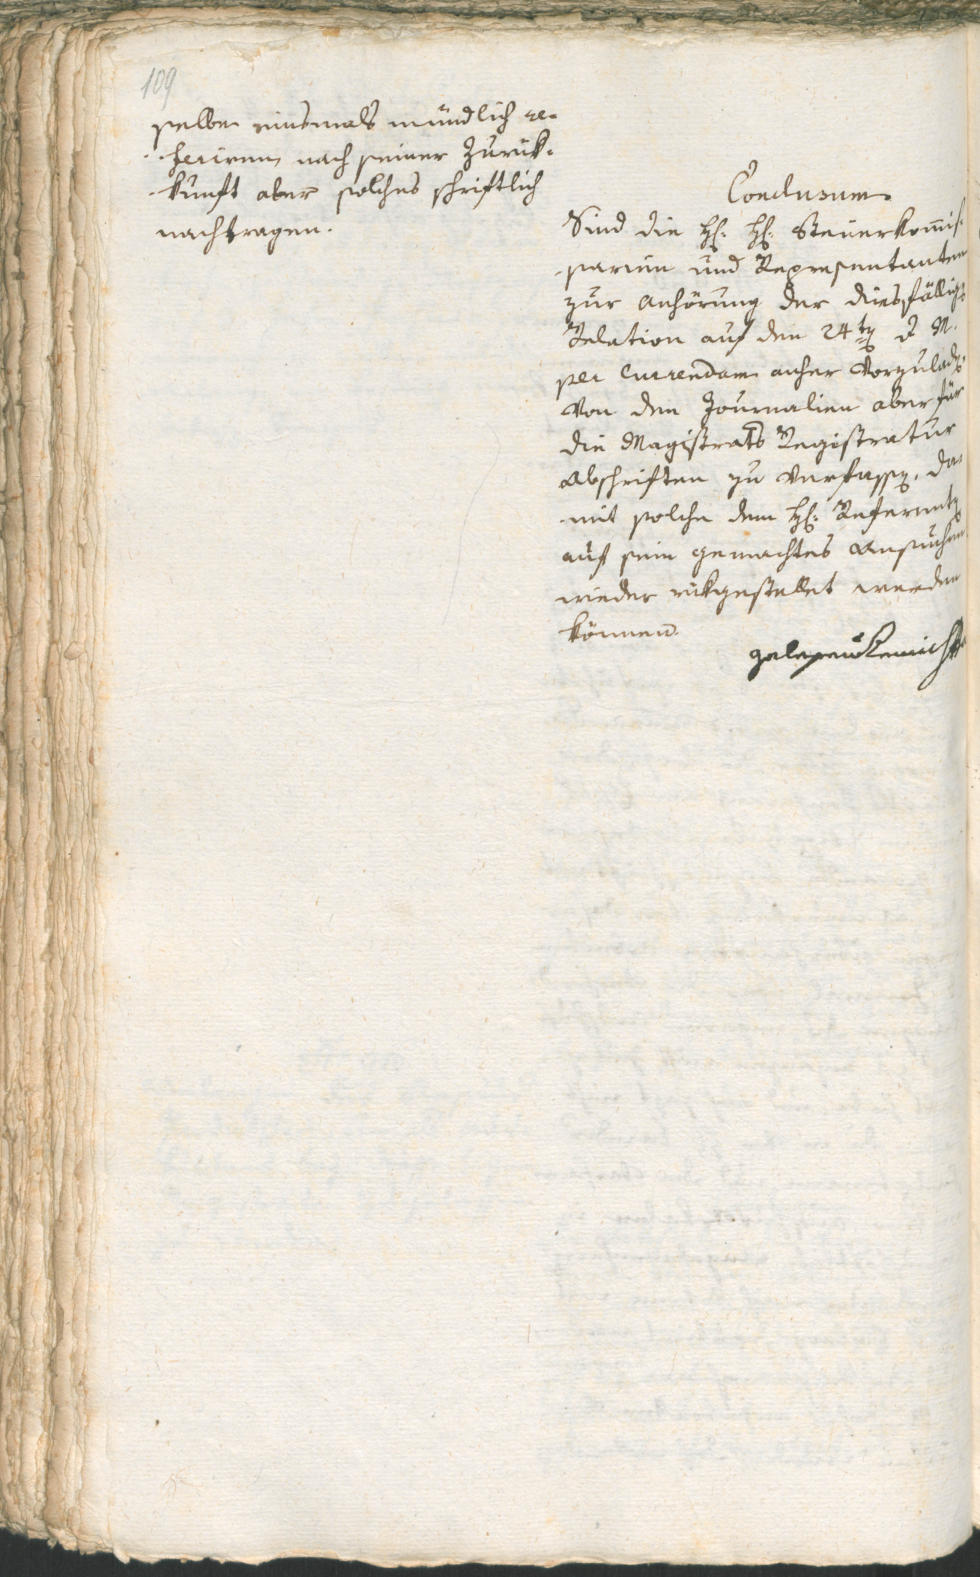 109
selbe einsmals mündlich re-
feriren, nach seiner Zurük-
kunft aber solches schriftlich
nachtragen.
Conclusum
Sind die H: H: Steuerkom̄is-
sarien und Representanten
zur Anhörung der diesfällign
Relation auf den 24tn d M.
per Currendam anher vorzuladn
von den Journalien aber für
die Magistrats Registratur
Abschriften zu verfassn, da-
mit solche dem H: Referentn
auf sein gemachtes Ansuchen
wieder rükgestellet werden
können.
gelesen